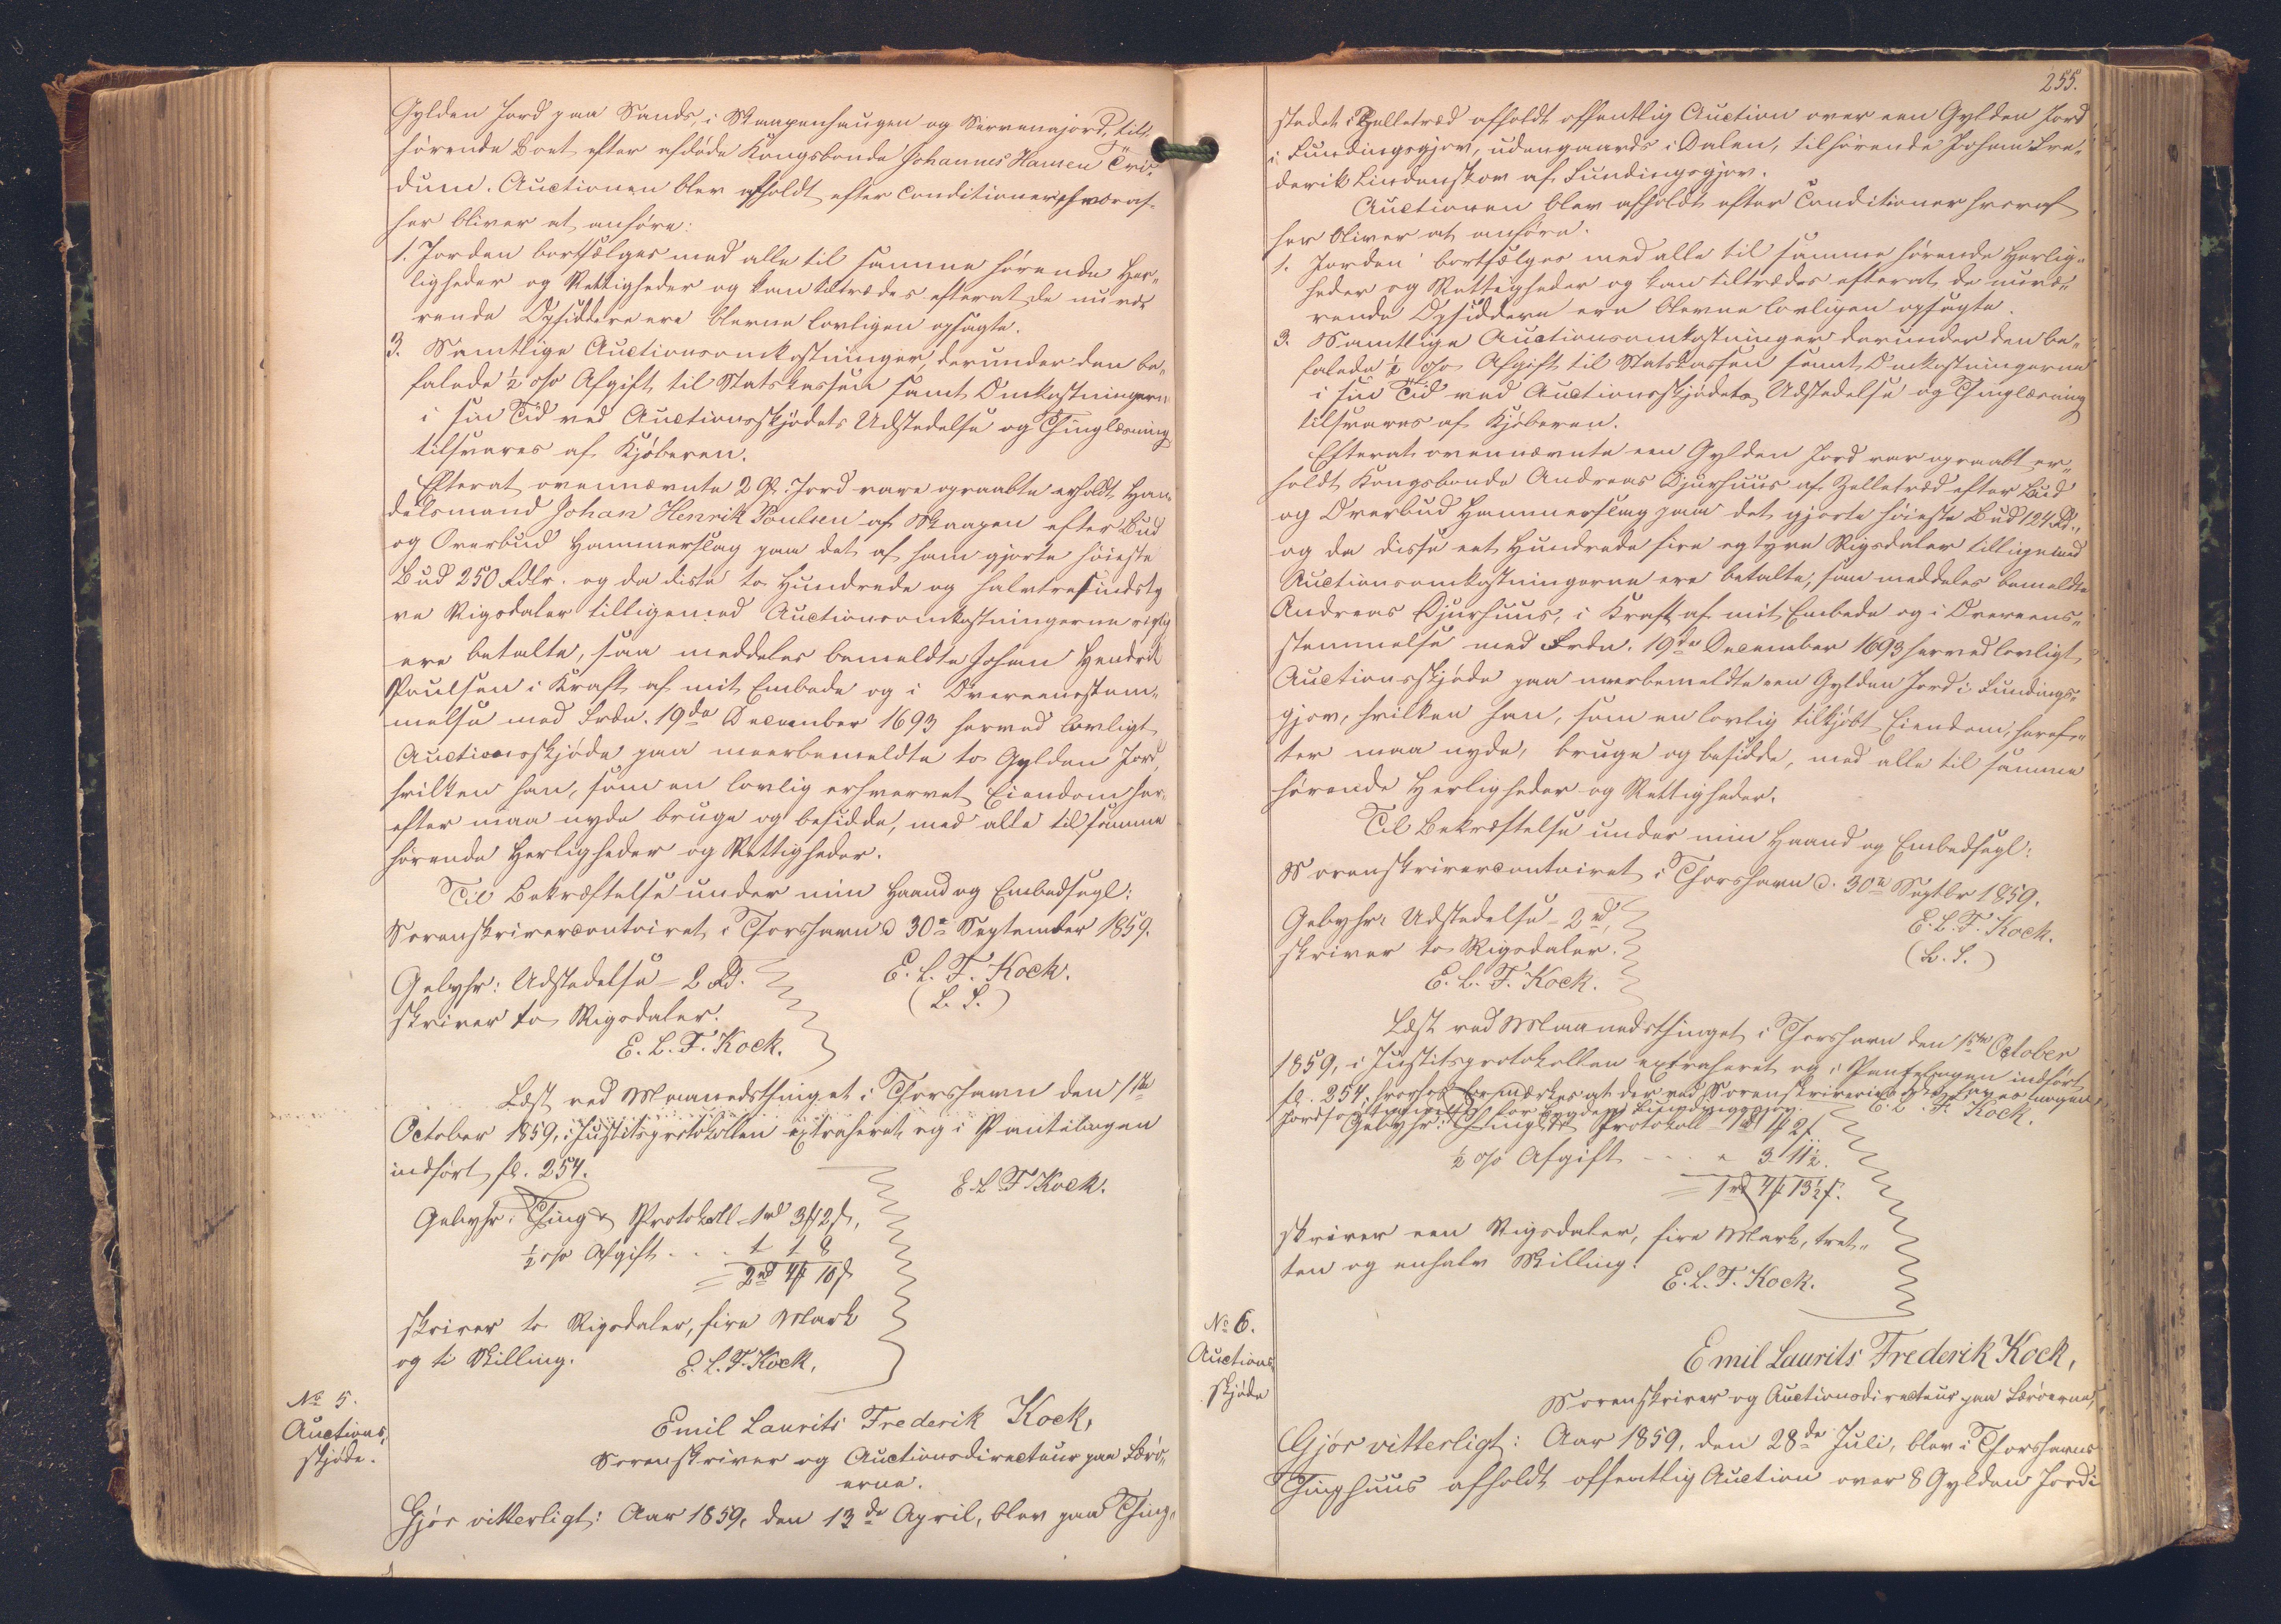 Gylden Jord paa Sands, i Skaapenhaugen og Servenajord, til-
hørende Boet efter afdøde Kongsbonde Johannes Hansen Trö-
dum. Auctionen blev afholdt efter Conditioner, hvoraf
her bliver at anføre:
1. Jorden bortsælges med alle til samme hørende Her-
ligheder og Rettigheder og kan tiltrædes efterat de nuvæ-
rende Opsiddere ere blevne lovligen opsagte.
3. Samtlige Auctionsomkostninger, derunder den be-
falede ½ o/o Afgift til Statskassen samt Omkostningerne
i sin Tid ved Auctionsskjødets Udstedelse og Thinglæsning
tilsvares af Kjøberen.
Efterat ovennævnte 2 G. Jord vare opraabte erholdt Han-
delsmand Johan Henrik Poulsen af Skaapen efter Bud
og Overbud Hammerslag paa det af ham gjorte høieste
Bud 250 Rdlr. og da disse to Hundrede og halvtresindsty
ve Rigsdaler tilligemed Auctionsomkostningerne rigtig
ere betalte, saa meddeles bemeldte Johan Hendrik
Poulsen i Kraft af mit Embede og i Overeensstem-
melse med Frdn. 19de December 1693 herved lovligt
Auctionsskjøde paa meerbemeldte to Gylden Jord,
hvilken han, som en lovlig erhvervet Eiendom her-
efter maa nyde bruge og besidde, med alle til samme
hørende Herligheder og Rettigheder.
Til Bekræftelse under min Haand og Embedsegl:
Sorenskrivercontoiret i Thorshavn d 30te September 1859.
Gebyhr: Udstedelse = 2 Rd.
E. L. F. Kock.
(L. S.)
skriver to Rigsdaler.
E. L. F. Kock.
Læst ved Maanedsthinget i Thorshavn den 1ste
October 1859, i Justitsprotokollen extraheret og i Pantebogen
indført fl. 254.
E. L. F. Kock.
Gebyhr: Thingl. & Protokoll = 1rd 3# 2s,
½ o/o Afgift . . . 1 1 8
= 2rd 4# 10s
skriver to Rigsdaler, fire Mark
og ti Skilling.
E. L. F. Kock.
No 5.
Auctions-
skjøde.
Emil Laurits Frederik Kock,
Sorenskriver og Auctionsdirecteur paa Færø-
erne.
Gjör vitterligt: Aar 1859, den 13de April, blev paa Thing-
255.
stedet i Zelletræd afholdt offentlig Auction over een Gylden Jord
i Fundingsgjov, udengaards i Dalen, tilhørende Johan Fre-
derik Lindenskov af Fundingsgjov.
Auctionen blev afholdt efter Conditioner hvoraf
her bliver at anføre:
1. Jorden bortsælges med alle til samme hørende Herlig-
heder og Rettigheder og kan tiltrædes efterat de nuvæ-
rende Opsiddere ere blevne lovligen opsagte.
3. Samtlige Auctionsomkostninger derunder den be-
falede ½ o/o Afgift til Statskassen samt Omkostningerne
i sin Tid ved Auctionsskjødets Udstedelse og Thinglæsning
tilsvares af Kjøberen.
Efterat ovennævnte een Gylden Jord var opraabt er-
holdt Kongsbonde Andreas Djurhuus af Zelletræd efter Bud
og Overbud Hammerslag paa det gjorte høieste Bud 124 Rd.,
og da disse eet Hundrede fire og tyve Rigsdaler tilligemed
Auctionsomkostningerne ere betalte, saa meddeles bemeldte
Andreas Djurhuus, i Kraft af mit Embede og i Overeens-
stemmelse med Frdn. 19de December 1693 herved lovligt
Auctionsskjøde paa meerbemeldte een Gylden Jord i Fundings-
gjov, hvilken han, som en lovlig tilkjøbt Eiendom, heref-
ter maa nyde, bruge og besidde, med alle til samme
hørende Herligheder og Rettigheder.
Til Bekræftelse under min Haand og Embedsegl:
Sorenskrivercontoiret i Thorshavn d. 30te Septbr 1859.
Gebyhr: Udstedelse = 2rd,
E. L. F. Kock.
skriver to Rigsdaler.
(L. S.)
E. L. F. Kock.
Læst ved Maanedsthinget i Thorshavn den 1ste October
1859, i Justitsprotokollen extraheret og i Pantebogen indført
fl. 254, hvorhos bemærkes at der ved Sorenskriveriet ikke haves nogen
Jordfortegnelse for Bygden Fundingsgjov.
E. L. F. Kock.
Gebyhr: Thingl. & Protokoll = 1rd 1# 2s
½ o/o Afgift - - - " 3 11½.
= 1rd 4# 13½s.
skriver een Rigsdaler, fire Mark, tret-
ten og enhalv Skilling.
E. L. F. Kock.
No 6.
Auctions-
skjøde
Emil Laurits Frederik Kock,
Sorenskriver og Auctionsdirecteur paa Færöerne,
Gjör vitterligt: Aar 1859, den 28de Juli, blev i Thorshavns
Thinghuus afholdt offentlig Auction over 8 Gylden Jord i